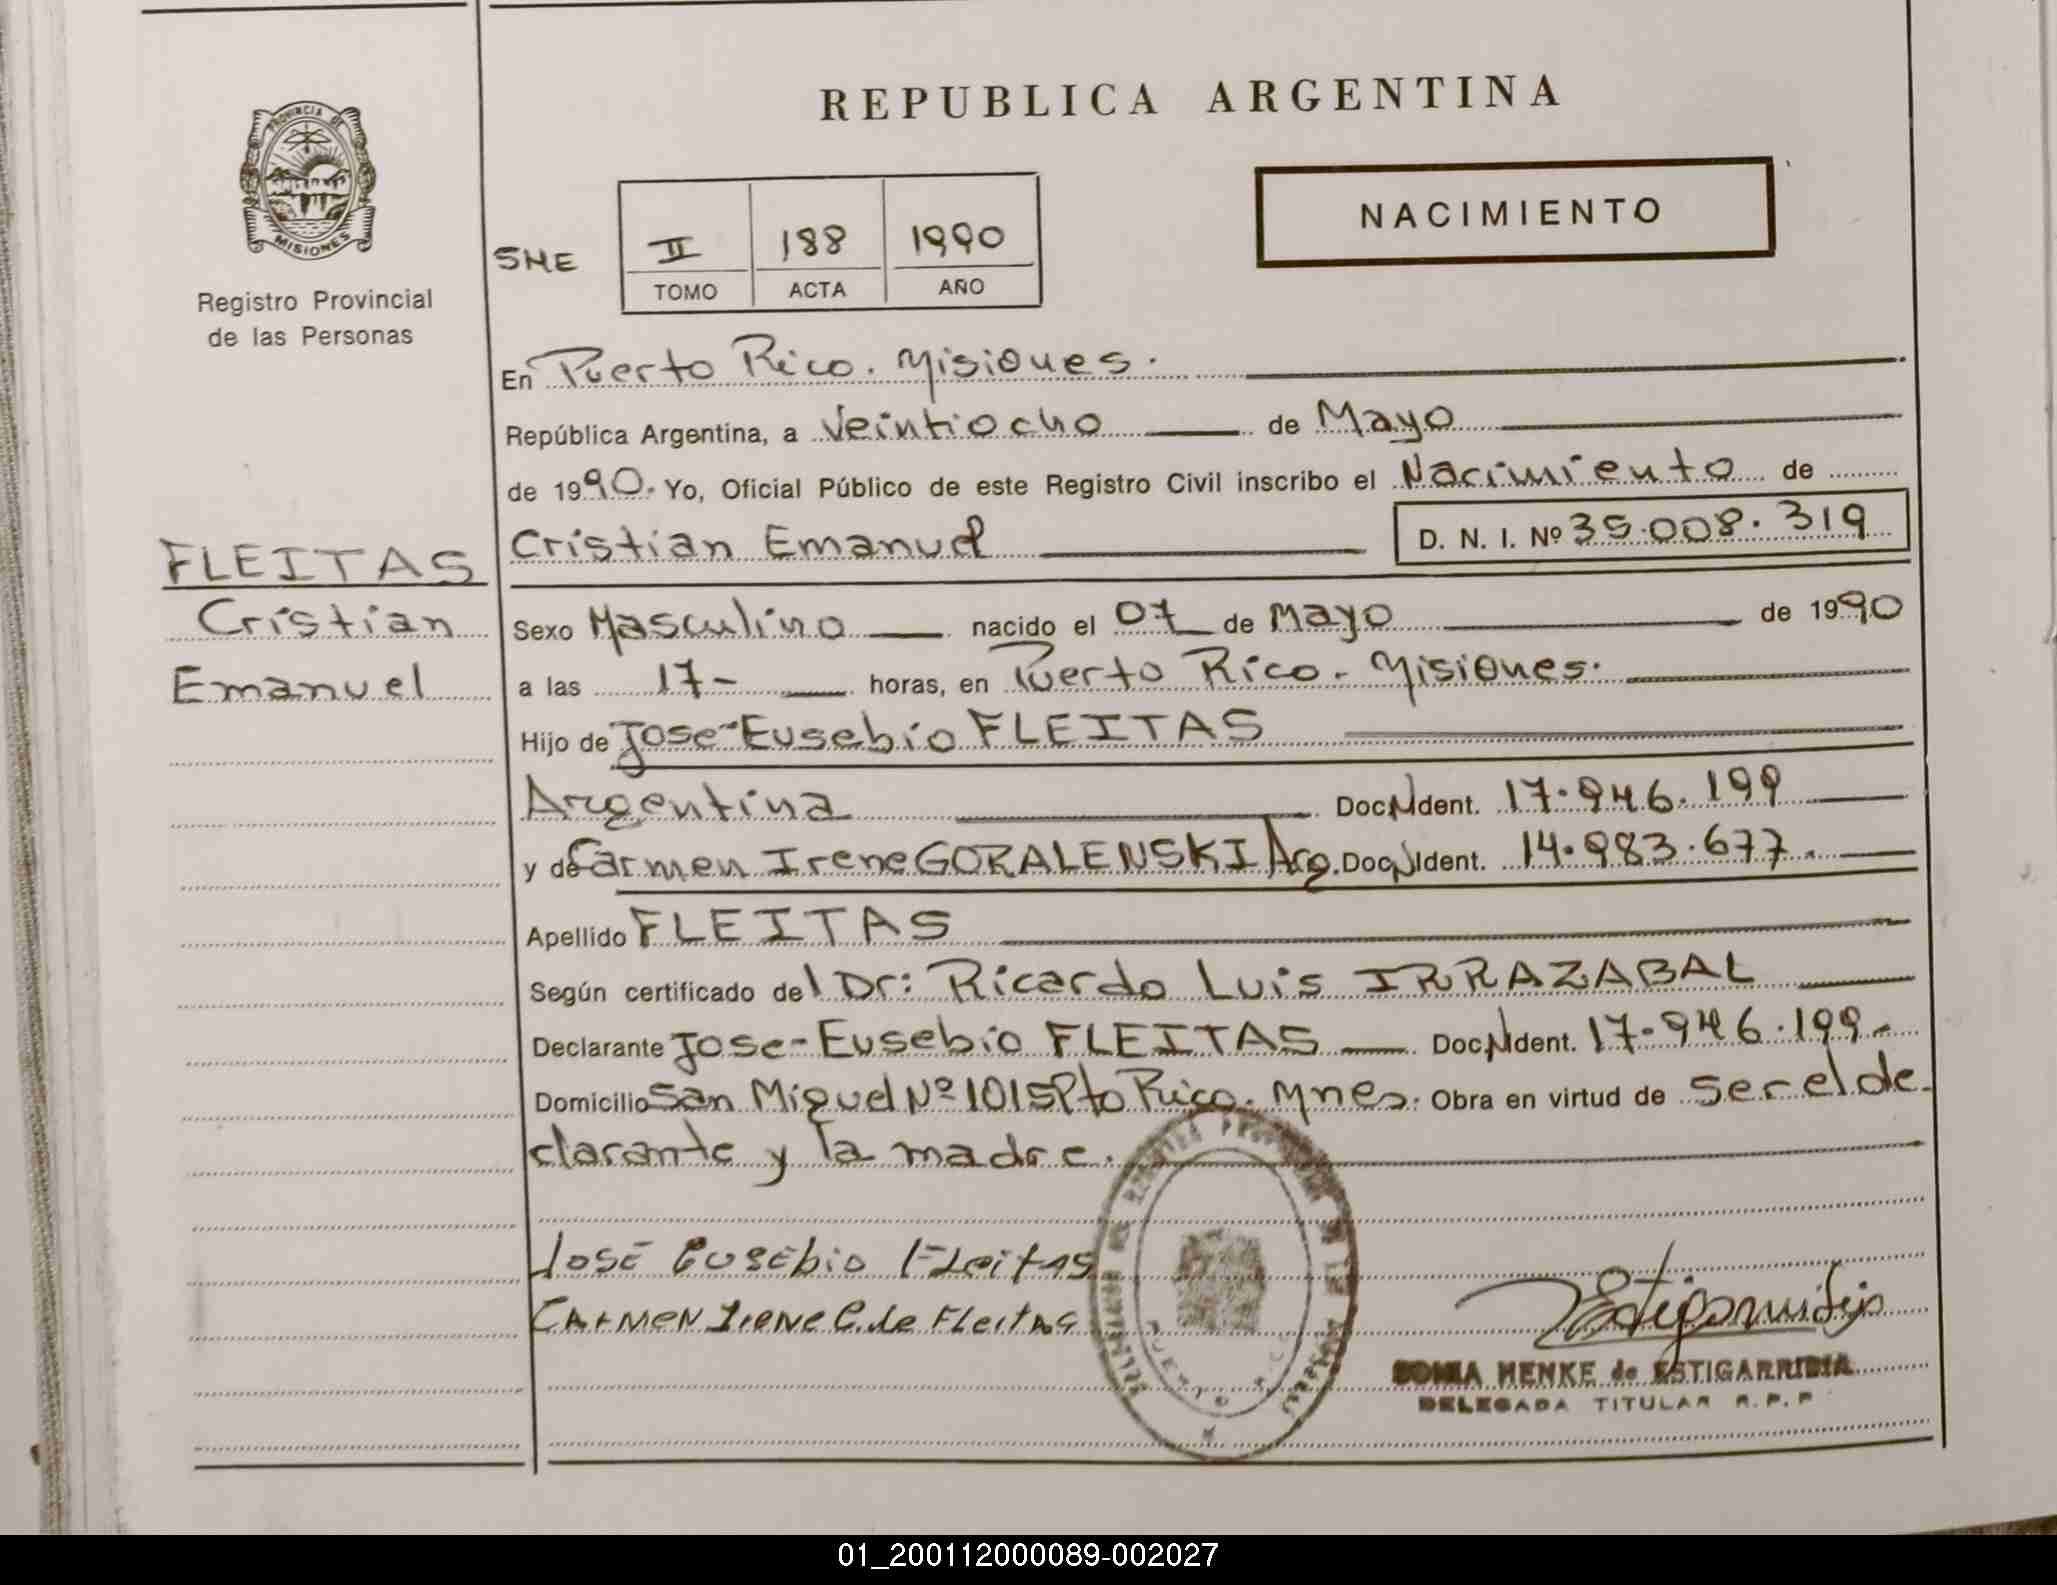 REPUBLICA ARGENTINA
PROVINCIA DE
MISIONES
Registro Provincial
de las Personas
NACIMIENTO
SHE
II 188 1990
TOMO ACTA AÑO
En Puerto Rico. Misiones.
República Argentina, a Veintiocho de Mayo
de 1990. Yo, Oficial Público de este Registro Civil inscribo el Nacimiento de
Cristian Emanuel D. N. I. Nº 35.008.319
FLEITAS
Cristian
Emanuel
Sexo Masculino nacido el 07 de Mayo de 1990
a las 17- horas, en Puerto Rico. Misiones.
Hijo de Jose-Eusebio FLEITAS
Argentina Doc. Ident. 17.946.199
y de Carmen Irene GORALENSKI Arg. Doc. Ident. 14.983.677.
Apellido FLEITAS
Según certificado del Dr: Ricardo Luis IRRAZABAL
Declarante Jose-Eusebio FLEITAS Doc. Ident. 17.946.199.-
Domicilio San Miguel Nº 1015 Pto Rico. Mnes. Obra en virtud de ser el de-
clarante y la madre.
José Eusebio Fleitas
Carmen Irene G. de Fleitas
SONIA HENKE de ESTIGARRIBIA
DELEGADA TITULAR R.P.P
01_200112000089-002027